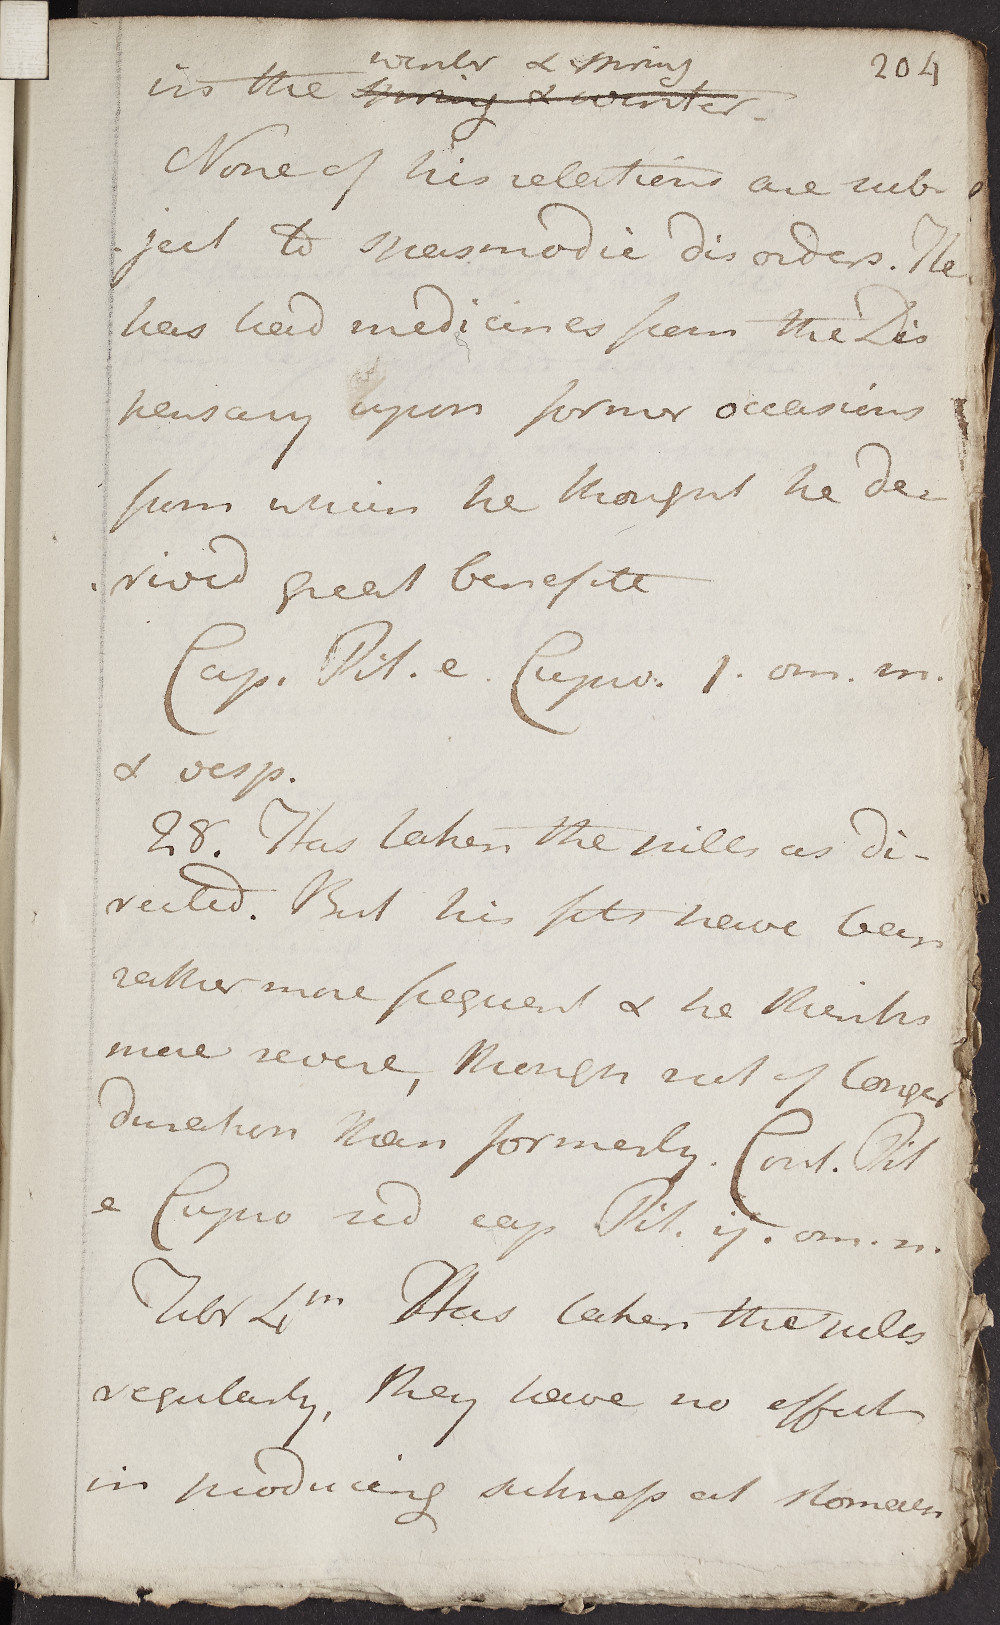 204
winter & spring
in the spring & winter.
None of his relations are sub-
ject to spasmodic disorders. He
has had medicines from the Dis
pensary upon former occasions
from which he thought he de-
rived great benefite
Cap. Pil. e. Cupro. 1. om. m.
& vesp.
28. Has taken the pills as di-
rected. But his fits have been
rather more frequent & he thinks
more severe, though not of longer
duration than formerly. Cont. Pil
e Cupro sed cap Pil. ij. om. n.
Febr 4th Has taken the pills
regularly, they have no effect
in producing sickness at stomach